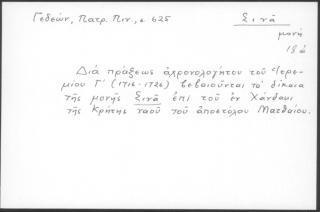 Γεδεών, Πατρ. Πιν., σ. 625
Σινᾶ
μονή
Διά πράξεως ἀχρονολογήτου τοῦ Ἱερε-
μίου Γ΄ (1716-1726) βεβαιοῦνται τά δίκαια
τῆς μονῆς Σινᾶ ἐπί τοῦ ἐν Χάνδακι
τῆς Κρήτης ναοῦ τοῦ ἀποστόλου Ματθαίου.